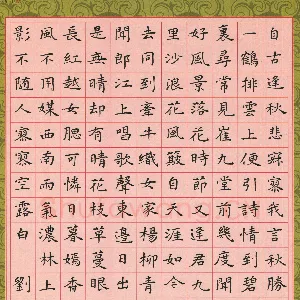 自古逢秋悲寂寥我言秋勝
一鶴排雲上便引詩情到碧
裏尋常見崔九堂前幾度聞
好風景落花時節又逢君
里沙浪淘風簸自天涯如今
去同到牽牛織女家楊柳青
聞郎江上唱歌聲東邊日出
是無晴卻有晴花枝草蔓眼
長紅越女腮可憐日暮嫣香
風不用媒西氣濃林上
影不隨人寂寂空露白劉